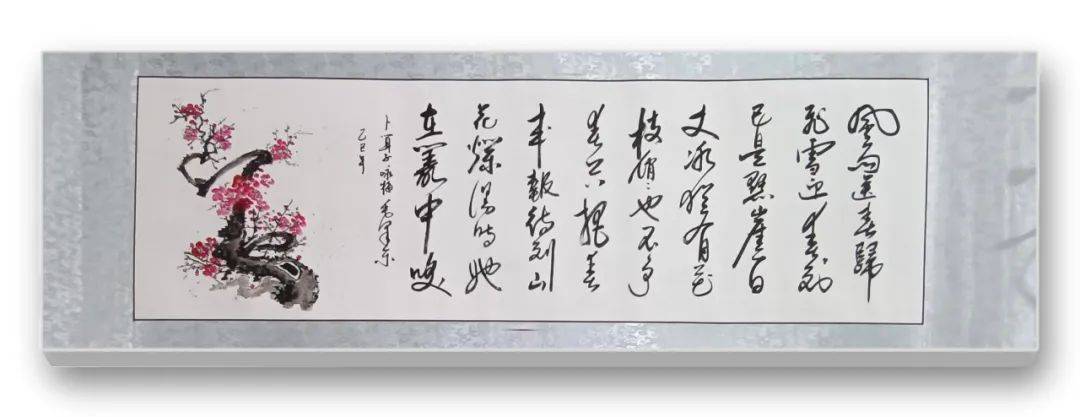 風雨送春歸
飛雪迎春到
已是懸崖百
丈冰猶有花
枝俏〻也不争
春只把春
来報待到山
花爛漫時她
在叢中咲
卜算子咏梅 毛泽东
乙巳年